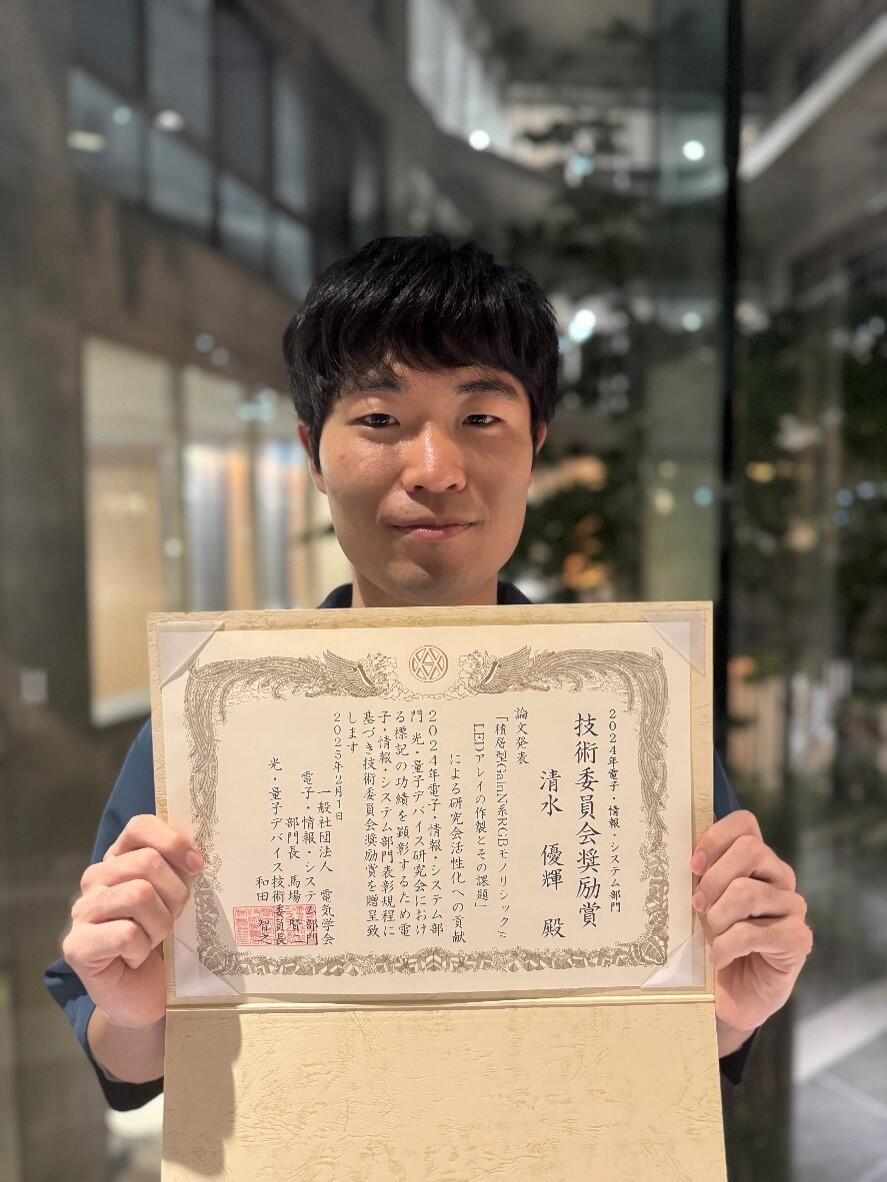 2024年電子・情報・システム部門
技術委員会奨励賞
清水 優輝 殿
論文発表
「積層型GaInN系RGBモノリシックμ
LEDアレイの作製とその課題」
による研究会活性化への貢献
2024年電子・情報・システム部
門 光・量子デバイス研究会におけ
る標記の功績を顕彰するため電
子・情報・システム部門表彰規程に
基づき技術委員会奨励賞を贈呈致
します
2025年2月1日
一般社団法人 電気学会
電子・情報・システム部門
部門長 馬場 賢二
光・量子デバイス技術委員長
和田 智之